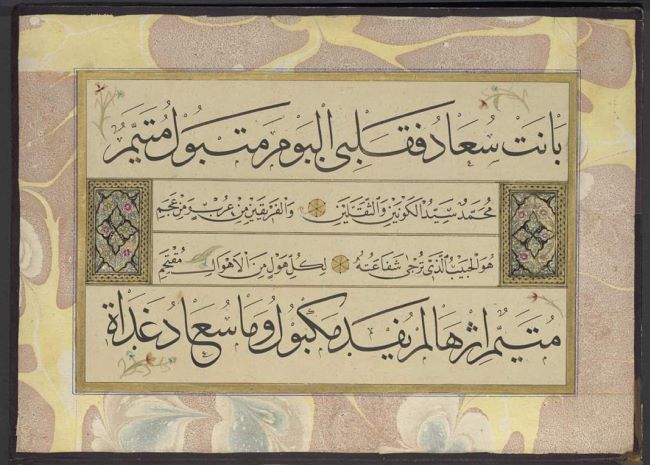 بَانَتْ سُعَادُ فَقَلْبِي الْيَوْمَ مَتْبُولُ مُتَيَّمٌ
مُحَمَّدٌ سَيِّدُ الْكَوْنَيْنِ وَالثَّقَلَيْنِ وَالْفَرِيقَيْنِ مِنْ عُرْبٍ وَمِنْ عَجَمِ
هُوَ الْحَبِيبُ الَّذِي تُرْجَى شَفَاعَتُهُ لِكُلِّ هَوْلٍ مِنَ الْأَهْوَالِ مُقْتَحَمِ
مُتَيَّمٌ اِثْرَهَا لَمْ يُفْدَ مَكْبُولُ وَمَا سُعَادُ غَدَاةَ